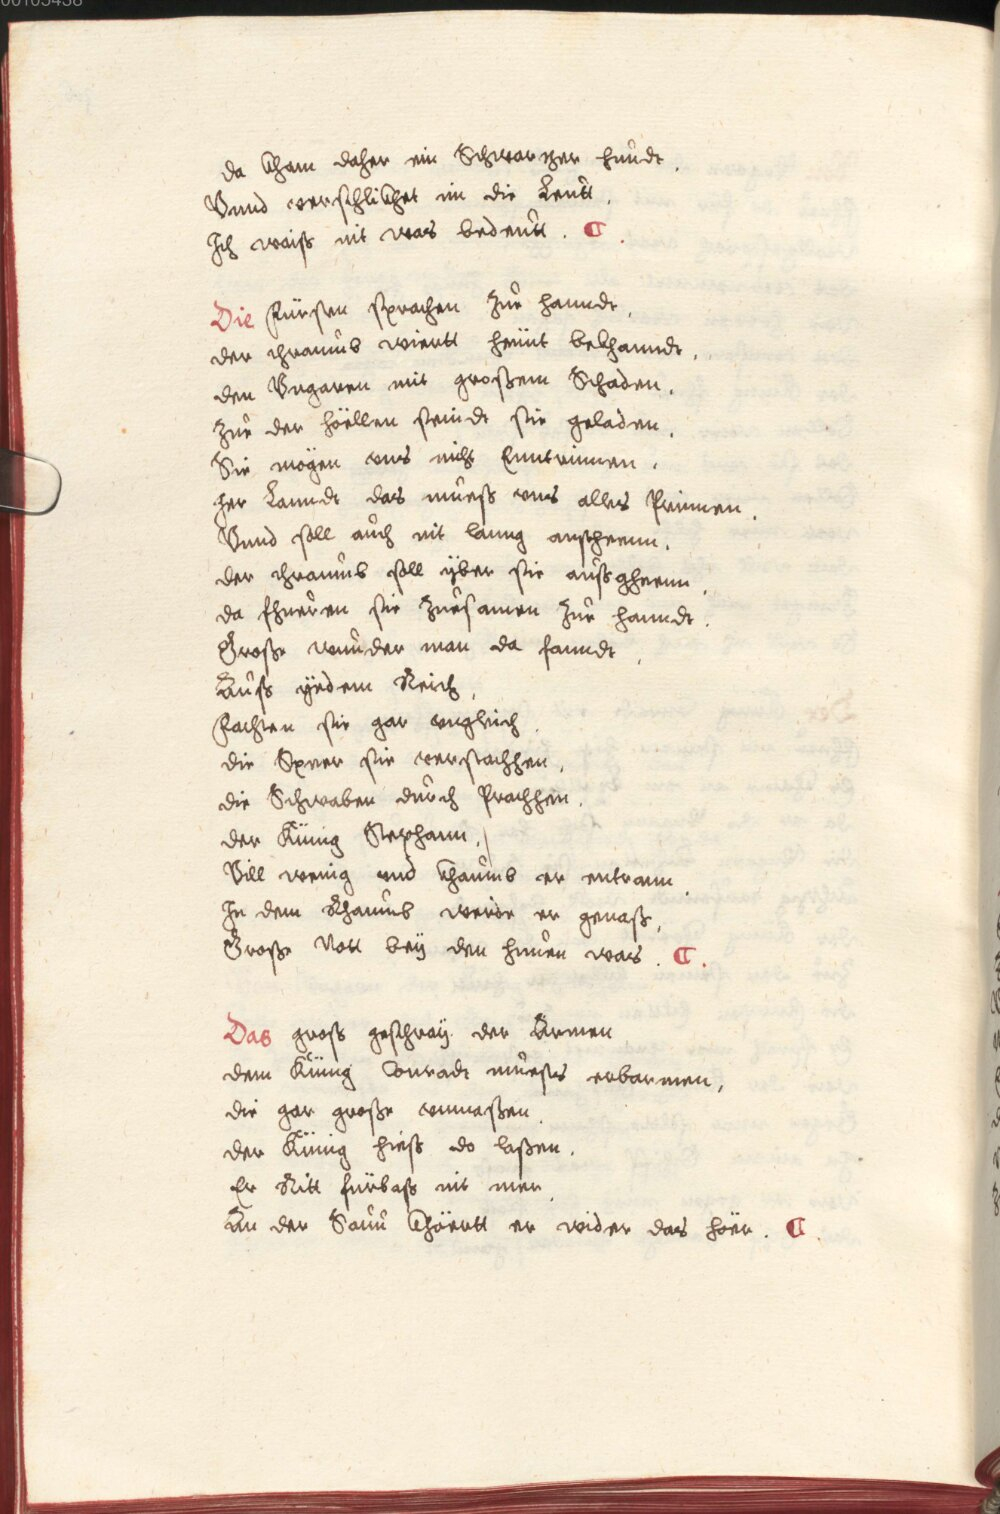 00105438
da kham daher ein Schwarzer hundt.
Vnnd verschlickhet in die Leütt.
Ich waiß nit was bedeütt. ¶.
Die Fürsten sprachen zur hanndt.
der chraumb wiertt heünt bekhanndt.
den Vngaren mit großem Schaden.
Zur der höellen seindt sie geladen.
Sie mögen vns nicht Enntrinnen.
her Lanndt das mueß vns alles Prinnen.
Vnnd soll auch nit lanng anscheenn.
der chraumb soll yber sie außgheenn.
da fhueren sie Zuesamen Zur hanndt.
Große wunder man da fanndt.
Auß yedem Reich.
Fachten sie gar vngleich.
die Speer sie verstachhen.
die Schwaben durch Prachhen.
der Künig Stephann.
Vill wenig vnd khaumb er entrann.
In dem Khaumb weise er genaß.
Große Nott bey den hunen was. ¶.
Das groß geschray der Armen
dem Künig Conradt mueßs erbarmen.
die gar große vnmaßen.
der Künig hieß do laßen.
Er Ritt fürbaß nit mer.
An der Saun khöertt er wider das höer. ¶.